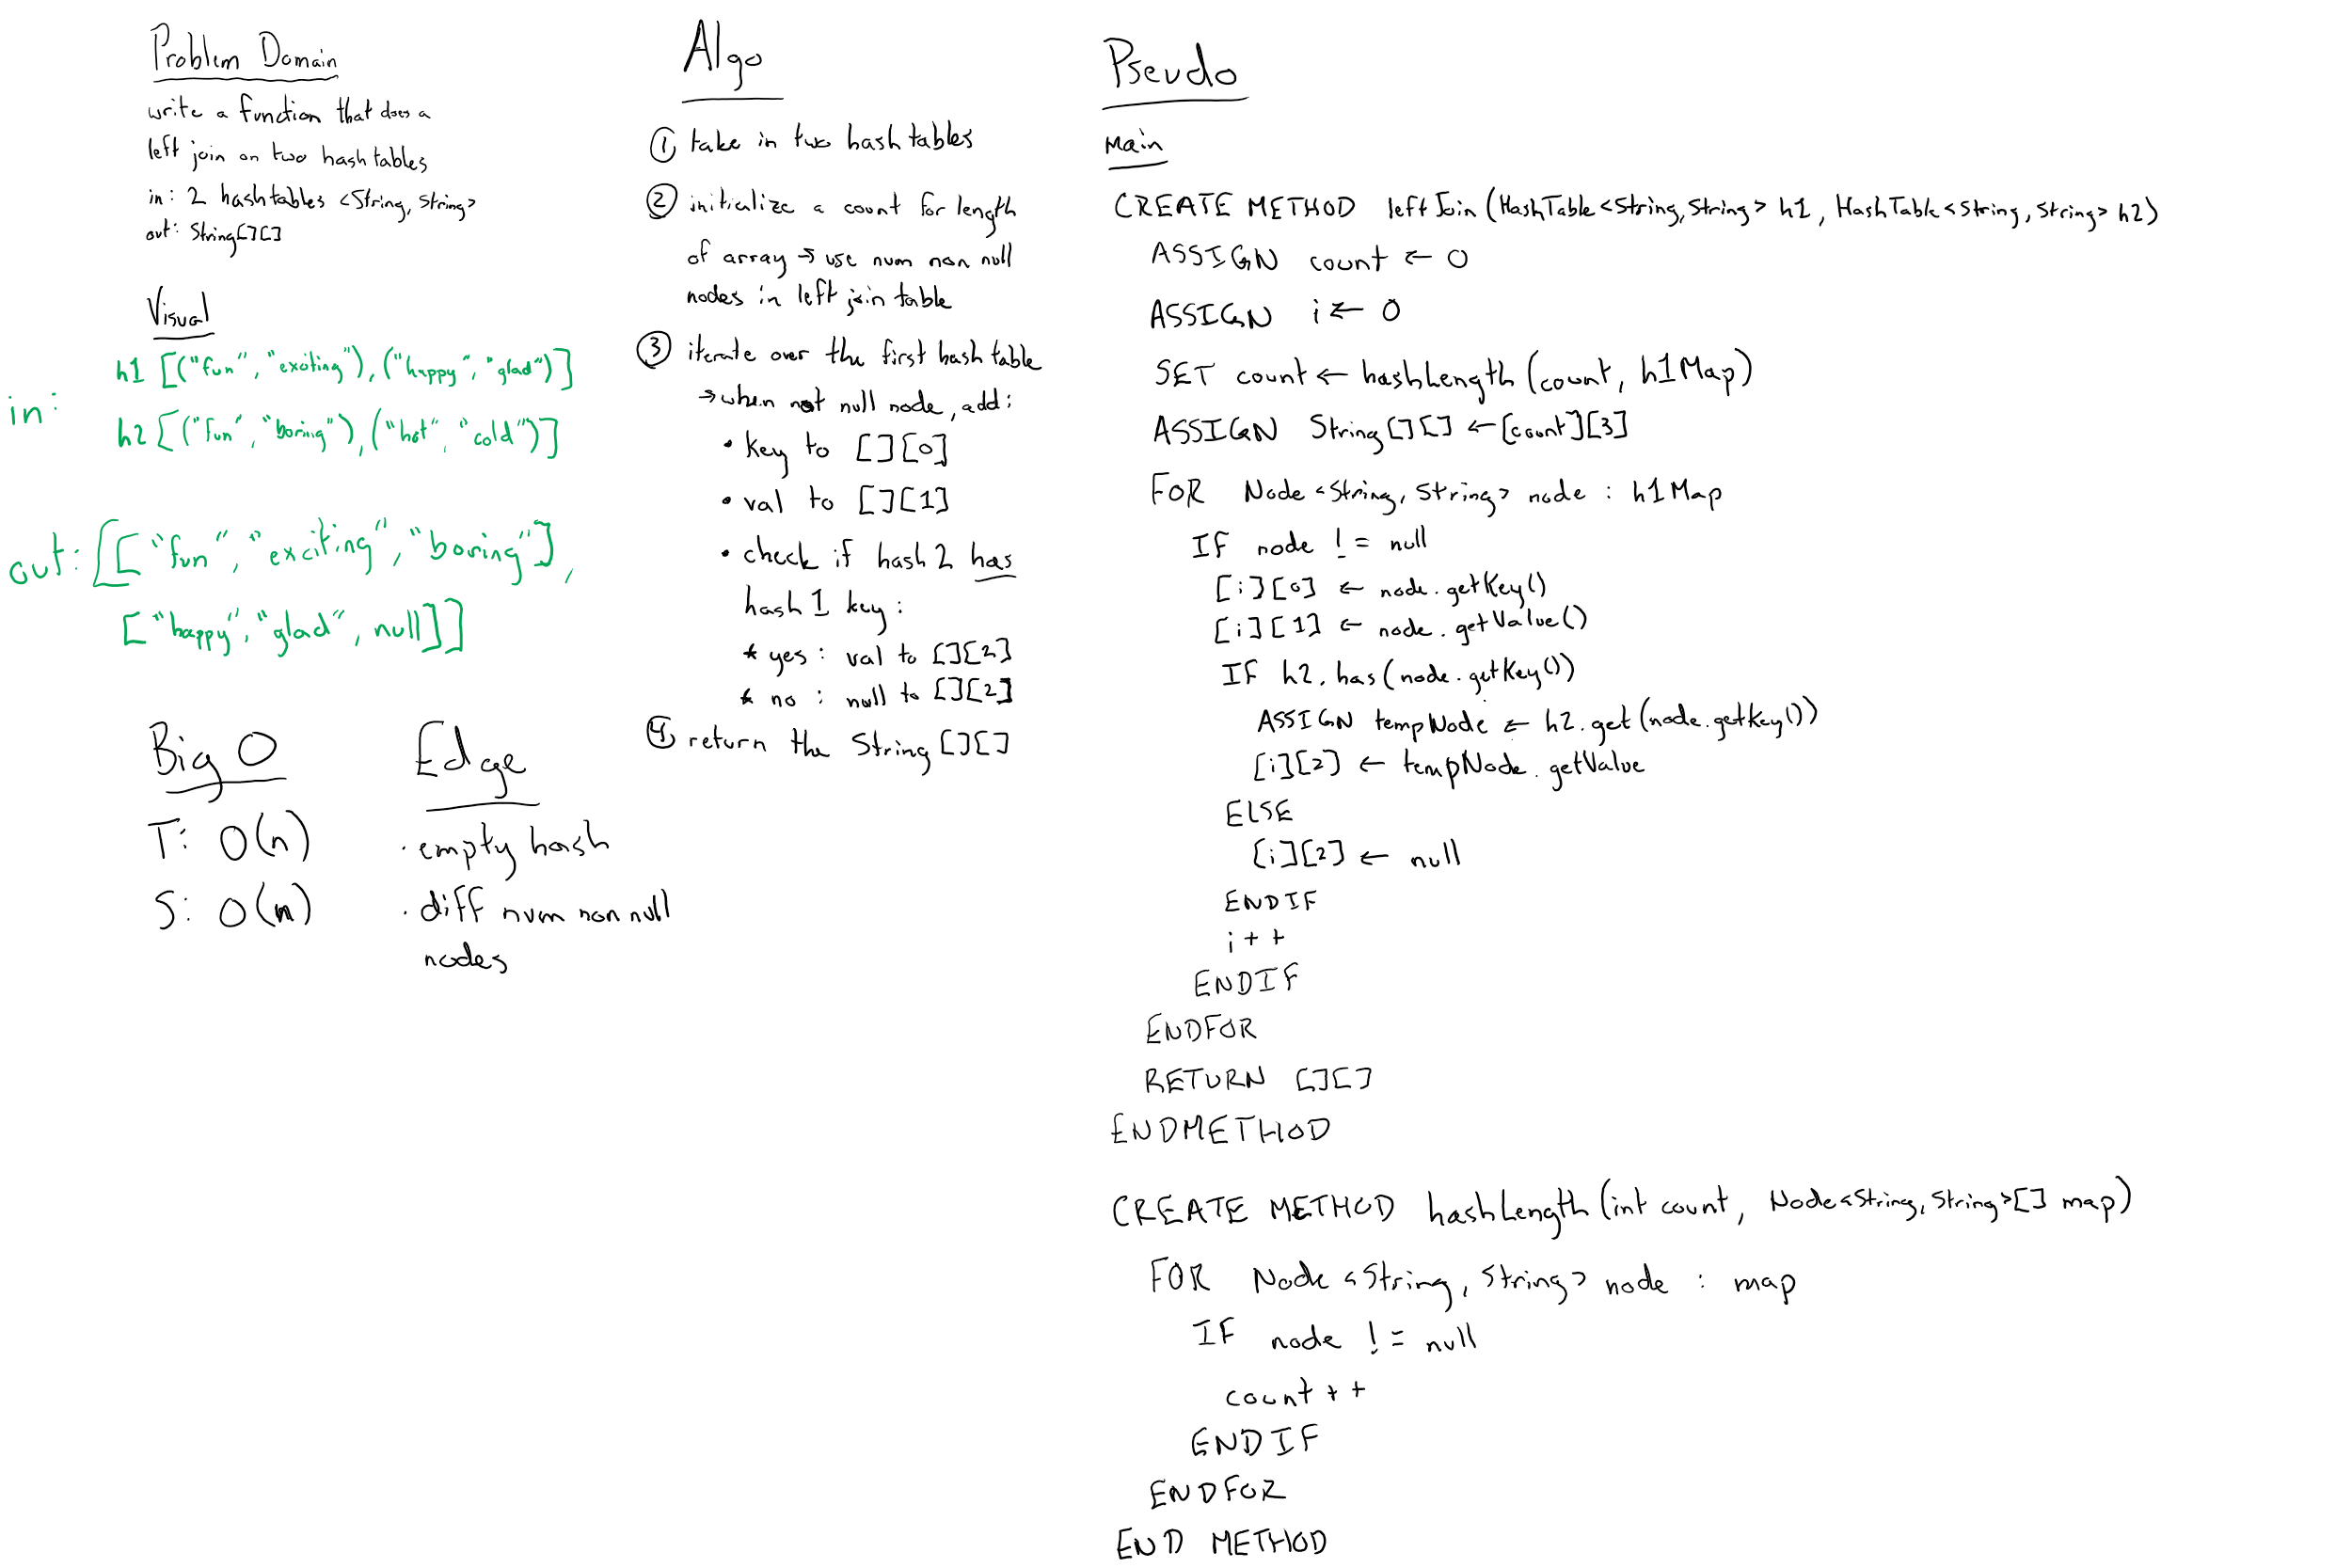 Problem Domain
write a function that does a
left join on two hashtables
in: 2 hashtables <String, String>
out: String[][]
Visual
in:
h1 [("fun", "exciting"), ("happy", "glad")]
h2 [("fun", "boring"), ("hot", "cold")]
out: [["fun", "exciting", "boring"],
["happy", "glad", null]]
Big O
T: O(n)
S: O(n)
Edge
· empty hash
· diff num non null
nodes
Algo
① take in two hashtables
② initialize a count for length
of array → use num non null
nodes in left join table
③ iterate over the first hashtable
→ when not null node, add:
• key to [][0]
• val to [][1]
• check if hash2 has
hash1 key:
* yes: val to [][2]
* no: null to [][2]
④ return the String[][]
Pseudo
Main
CREATE METHOD leftJoin(HashTable<String, String> h1, HashTable<String, String> h2)
ASSIGN count ← 0
ASSIGN i ← 0
SET count ← hashLength(count, h1Map)
ASSIGN String[][] ← [count][3]
FOR Node<String, String> node : h1Map
IF node != null
[i][0] ← node.getKey()
[i][1] ← node.getValue()
IF h2.has(node.getKey())
ASSIGN tempNode ← h2.get(node.getKey())
[i][2] ← tempNode.getValue
ELSE
[i][2] ← null
ENDIF
i++
ENDIF
ENDFOR
RETURN [][]
ENDMETHOD
CREATE METHOD hashLength(int count, Node<String, String>[] map)
FOR Node<String, String> node : map
IF node != null
count++
ENDIF
ENDFOR
END METHOD